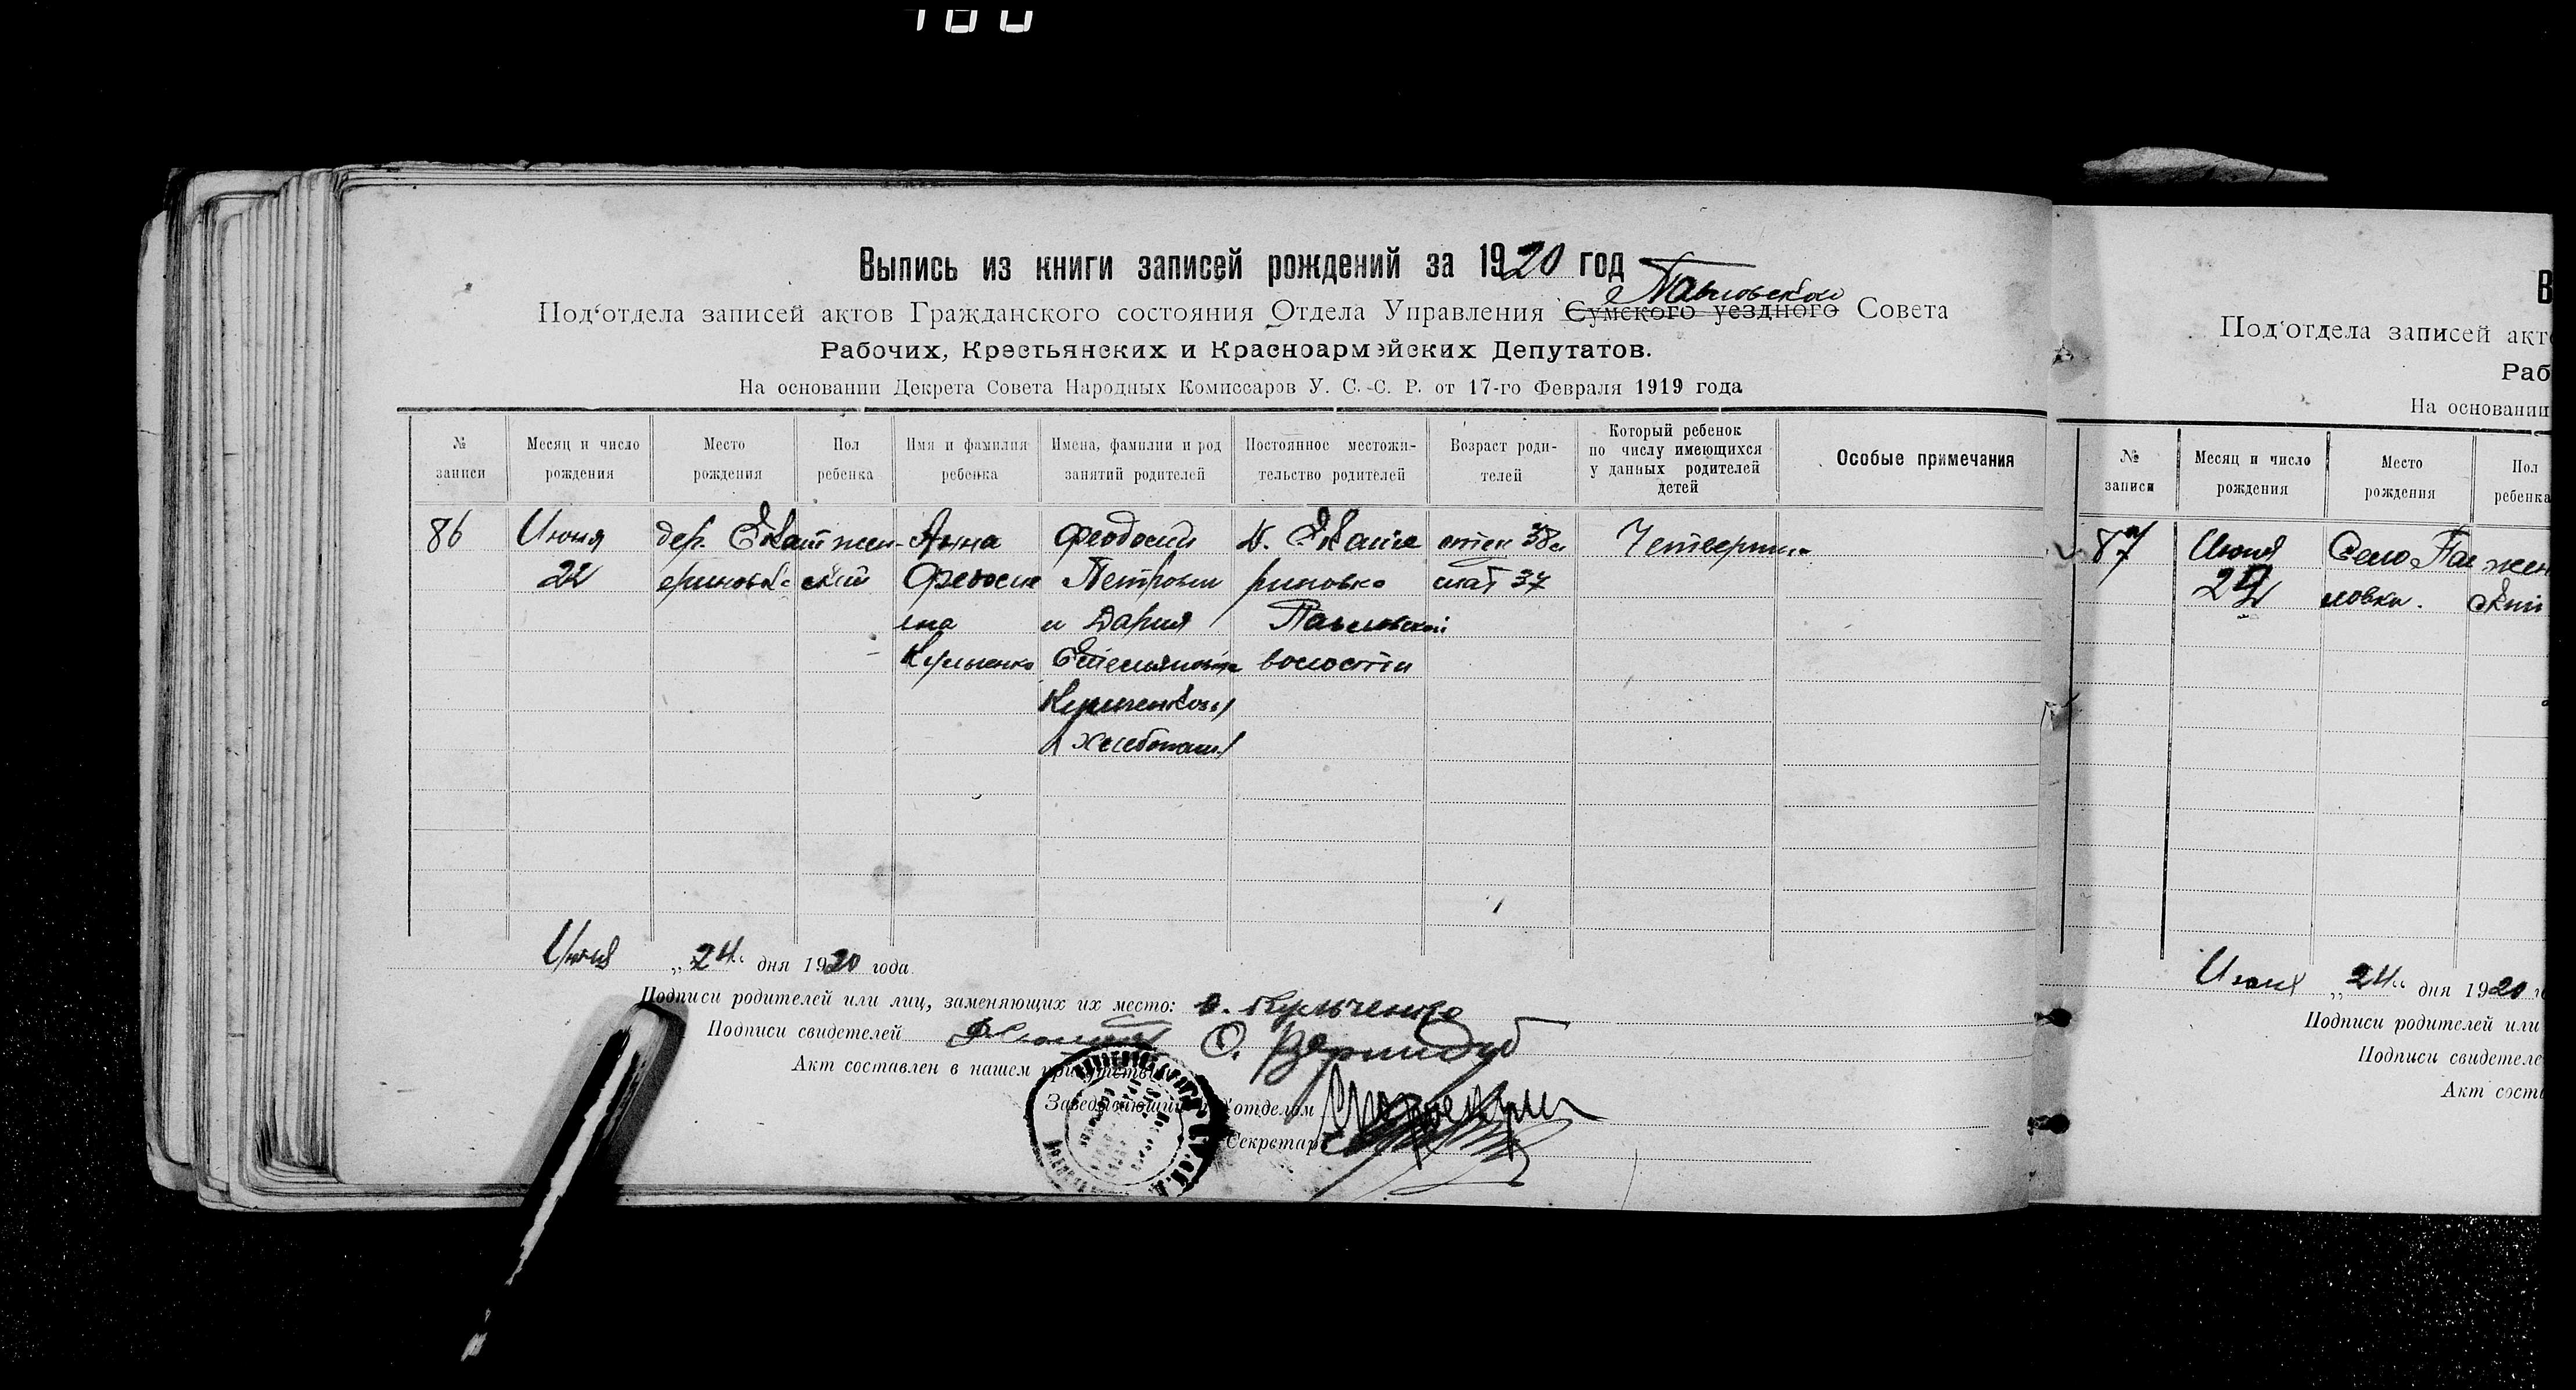 Выпись из книги записей рождений за 1920 год
Павловской
Под‘отдела записей актов Гражданского состояния Отдела Управления Сумского уездного Совета
Рабочих, Крестьянских и Красноармейских Депутатов.
На основании Декрета Совета Народных Комиссаров У. С. С. Р. от 17-го Февраля 1919 года
№ записи
Месяц и число рождения
Место рождения
Пол ребенка
Имя и фамилия ребенка
Имена, фамилии и род занятий родителей
Постоянное местожительство родителей
Возраст родителей
Который ребенок по числу имеющихся у данных родителей детей
Особые примечания
86 Июня дер. Екат жен- Анна Феодосий д. Екате отец 38 Четвертый
22 ериновка ский Феодось Петрович риновка мат 37
ина и Дария Павловской
Кульченко Емельяновна волости
Кульченковы
Хлебопаш.
Июня „24“ дня 1920 года
Подписи родителей или лиц, заменяющих их место: Кульченко
Подписи свидетелей О. Вернидуб
Акт составлен в нашем присутствии
Заведывающий под‘отделом
Секретарь
В
Под‘отдела записей акто
Раб
На основании
№ записи
Месяц и число рождения
Место рождения
Пол ребенка
87 Июня Село Пав жен
22 ловка. ский
Июня „24“ дня 1920 го
Подписи родителей или
Подписи свидетеле
Акт соста